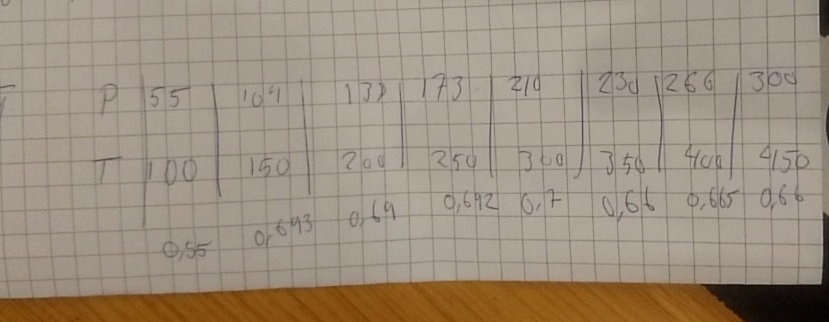 P 55 104 138 173 210 230 266 300
T 100 150 200 250 300 350 400 450
0,55 0,693 0,69 0,692 0,7 0,66 0,665 0,66